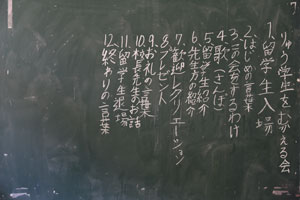 りゅう学生をむかえる会
1.留学生入場
2.はじめの言葉
3.この会をするわけ
4.歌(さんぽ)
5.留学生紹介
6.先生方の紹介
7.歓迎レクリエーション
8.プレゼント
9.お礼の言葉
10.校長先生のお話
11.留学生退場
12.終わりの言葉